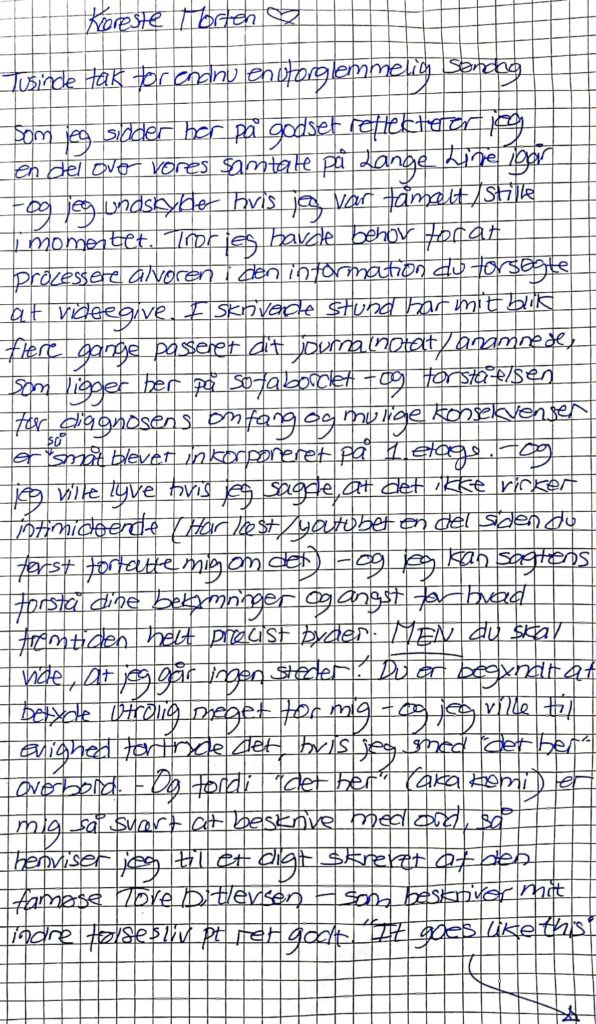 Kæreste Morten ♡
Tusinde tak for endnu en uforglemmelig søndag
Som jeg sidder her på godset reflekterer jeg
en del over vores samtale på Lange Linie igår
-og jeg undskylder hvis jeg var fåmælt/stille
i momentet. Tror jeg havde behov for at
processere alvoren i den information du forsøgte
at videegive. I skrivende stund har mit blik
flere gange passeret dit journalnotat/anamnese,
som ligger her på sofabordet -og forståelsen
for diagnosens omfang og mulige konsekvenser
er så småt blevet inkorporeret på 1. etage. -og
jeg ville lyve hvis jeg sagde, at det ikke virker
intimideende (Har læst/youtubet en del siden du
først fortalte mig om det) -og jeg kan sagtens
forstå dine bekymringer og angst for hvad
fremtiden helt præcist byder. MEN du skal
vide, at jeg går ingen steder! Du er begyndt at
betyde utrolig meget for mig - og jeg ville til
evighed fortryde det, hvis jeg smed "det her"
overbord. - Og fordi "det her" (aka kemi) er
mig så svært at beskrive med ord, så
henviser jeg til et digt skrevet af den
famøse Tove Ditlevsen - som beskriver mit
indre følsesliv pt ret godt. "It goes like this"